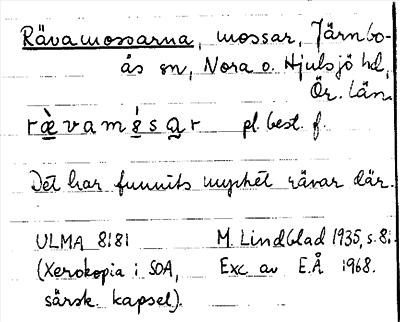 Rävamossarna, mossar, Järnbo-
ås sn, Nora o. Hjulsjö hd,
Ör. län.
ræ̀vamśsar pl. best. f.
Det har funnits mycket rävar där.
ULMA 8181 M. Lindblad 1935, s. 8.
(Xerokopia i SOA, Exc av E.Å 1968.
särsk. kapsel).